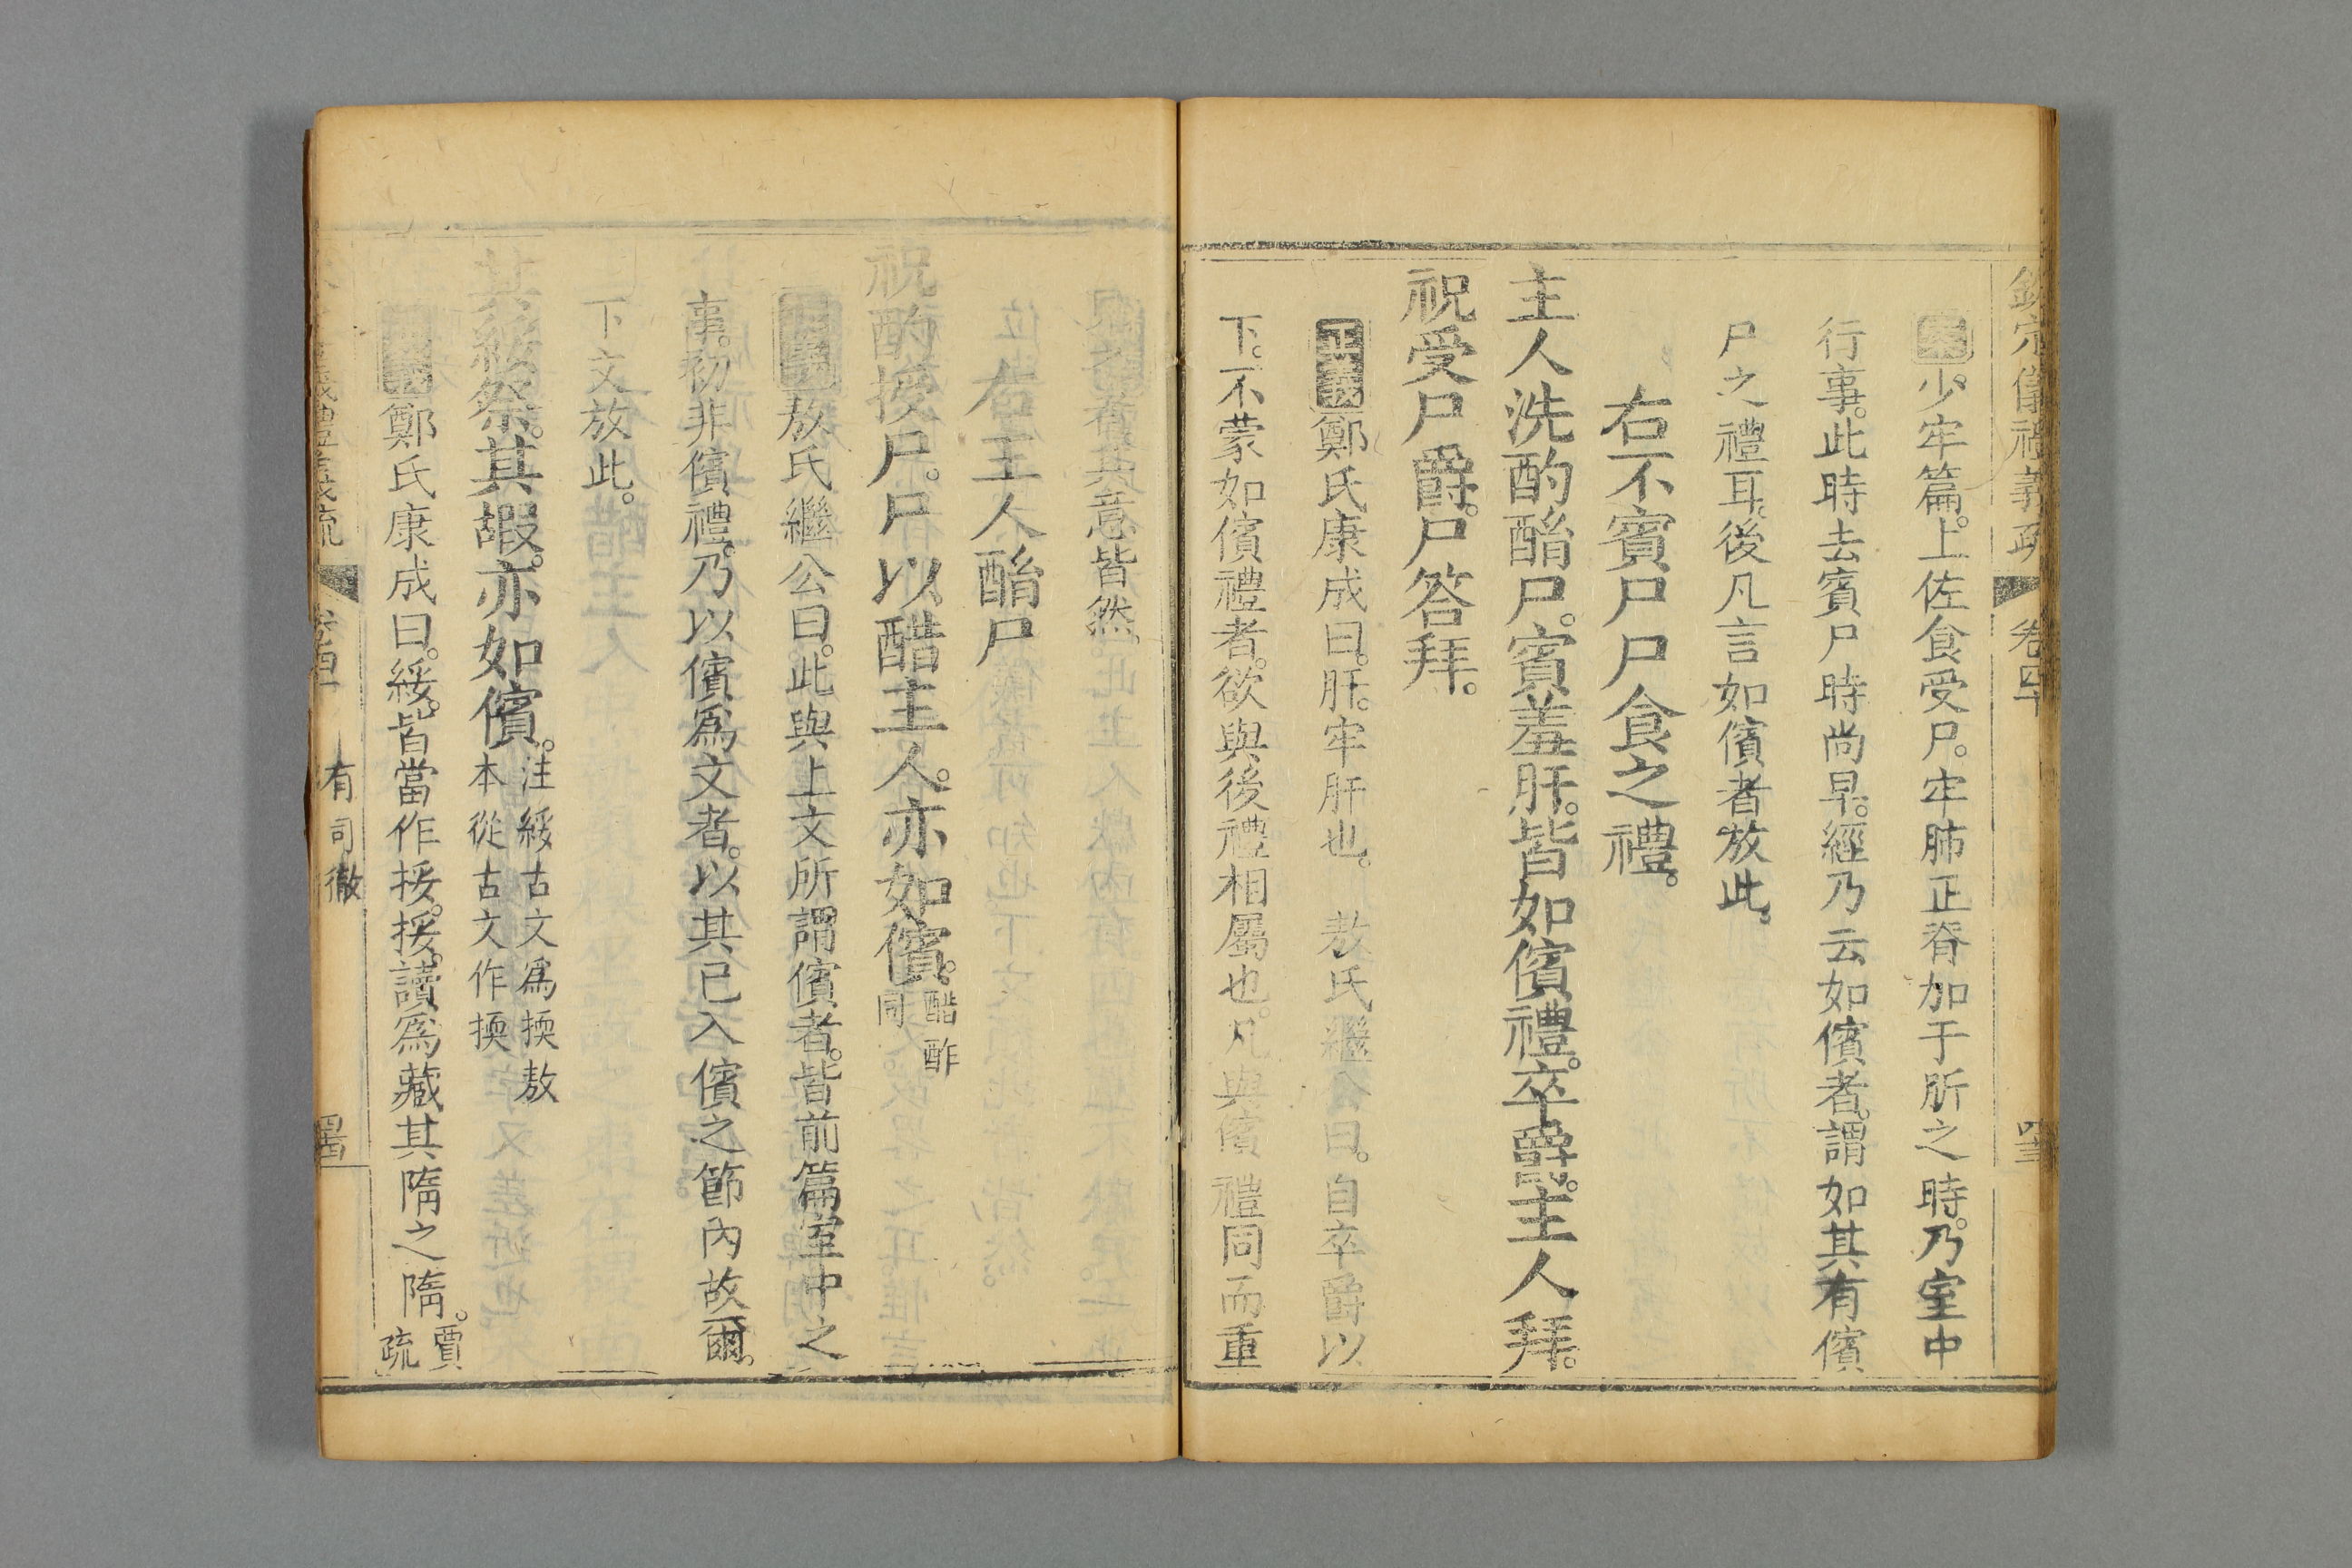 欽定儀禮義疏 卷四十 四十三
案少牢篇。上佐食受尸。牢肺正脊加于肵之時。乃室中
行事。此時去賓尸時尚早。經乃云如儐者。謂如其有儐
尸之禮耳。後凡言如儐者放此。
右不賓尸尸食之禮。
主人洗酌酳尸。賓羞肝。皆如儐禮。卒爵。主人拜。
祝受尸爵。尸答拜。
正義鄭氏康成曰。肝。牢肝也。 敖氏繼公曰。自卒爵以
下。不蒙如儐禮者。欲與後禮相屬也。凡與儐禮同而重
者其意皆然。
右主人酳尸
祝酌授尸。尸以醋主人。亦如儐。醋酢同
正義敖氏繼公曰。此與上文所謂儐者。皆前篇室中之
事。初非儐禮。乃以儐爲文者。以其已入儐之節內故爾。
下文放此。
其綏祭。其嘏。亦如儐。注綏古文爲㨎敖
本從古文作㨎
正義鄭氏康成曰。綏。皆當作挼。挼。讀爲藏其隋之隋。賈
疏
有司徹